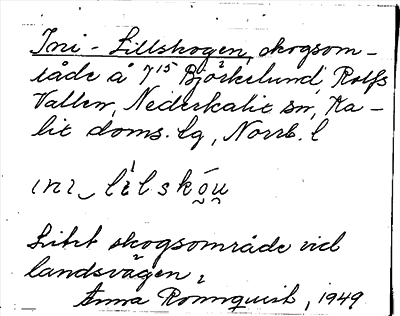 Ini - Lillskogen, skogsom-
råde å 7¹⁵ Björkelund, Rolfs
Vallen, Nederkalix sn, Ka-
lix doms.lg, Norrb. l
ini lilskóu
Litet skogsområde vid
landsvägen.
Anna Rönnquist, 1949